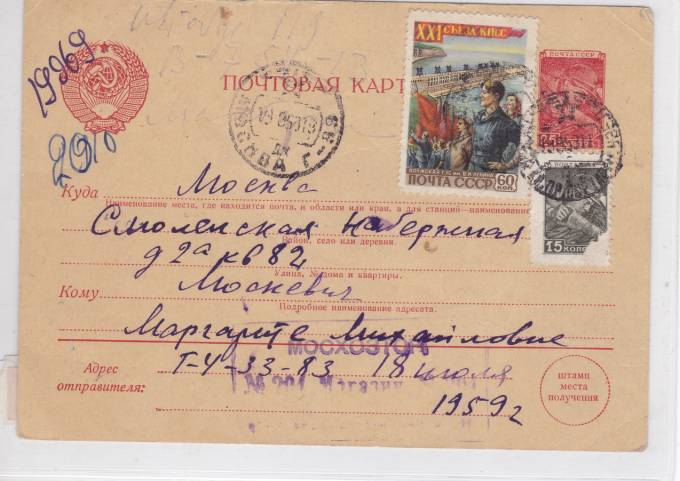 19969
2910
ПОЧТОВАЯ КАР
XXI СЪЕЗД КПСС
ВОЛЖСКАЯ ГЭС ИМ. В.И. ЛЕНИНА
ПОЧТА СССР 60 КОП.
ПОЧТА СССР
15 КОП.
МОСКВА Г-99
Куда Москва
Наименование места, где находится почта, и области или края, а для станций—наименование
Смоленская Набережная
Район, село или деревня
д 2а кв 82
Улица, № дома и квартиры.
Кому Москевич
Подробное наименование адресата.
Маргарите Михайловне
МОСХОЗТОРГ
Адрес отправителя:
Г-4-33-83 18 июля
1959г
штамп
места
получения